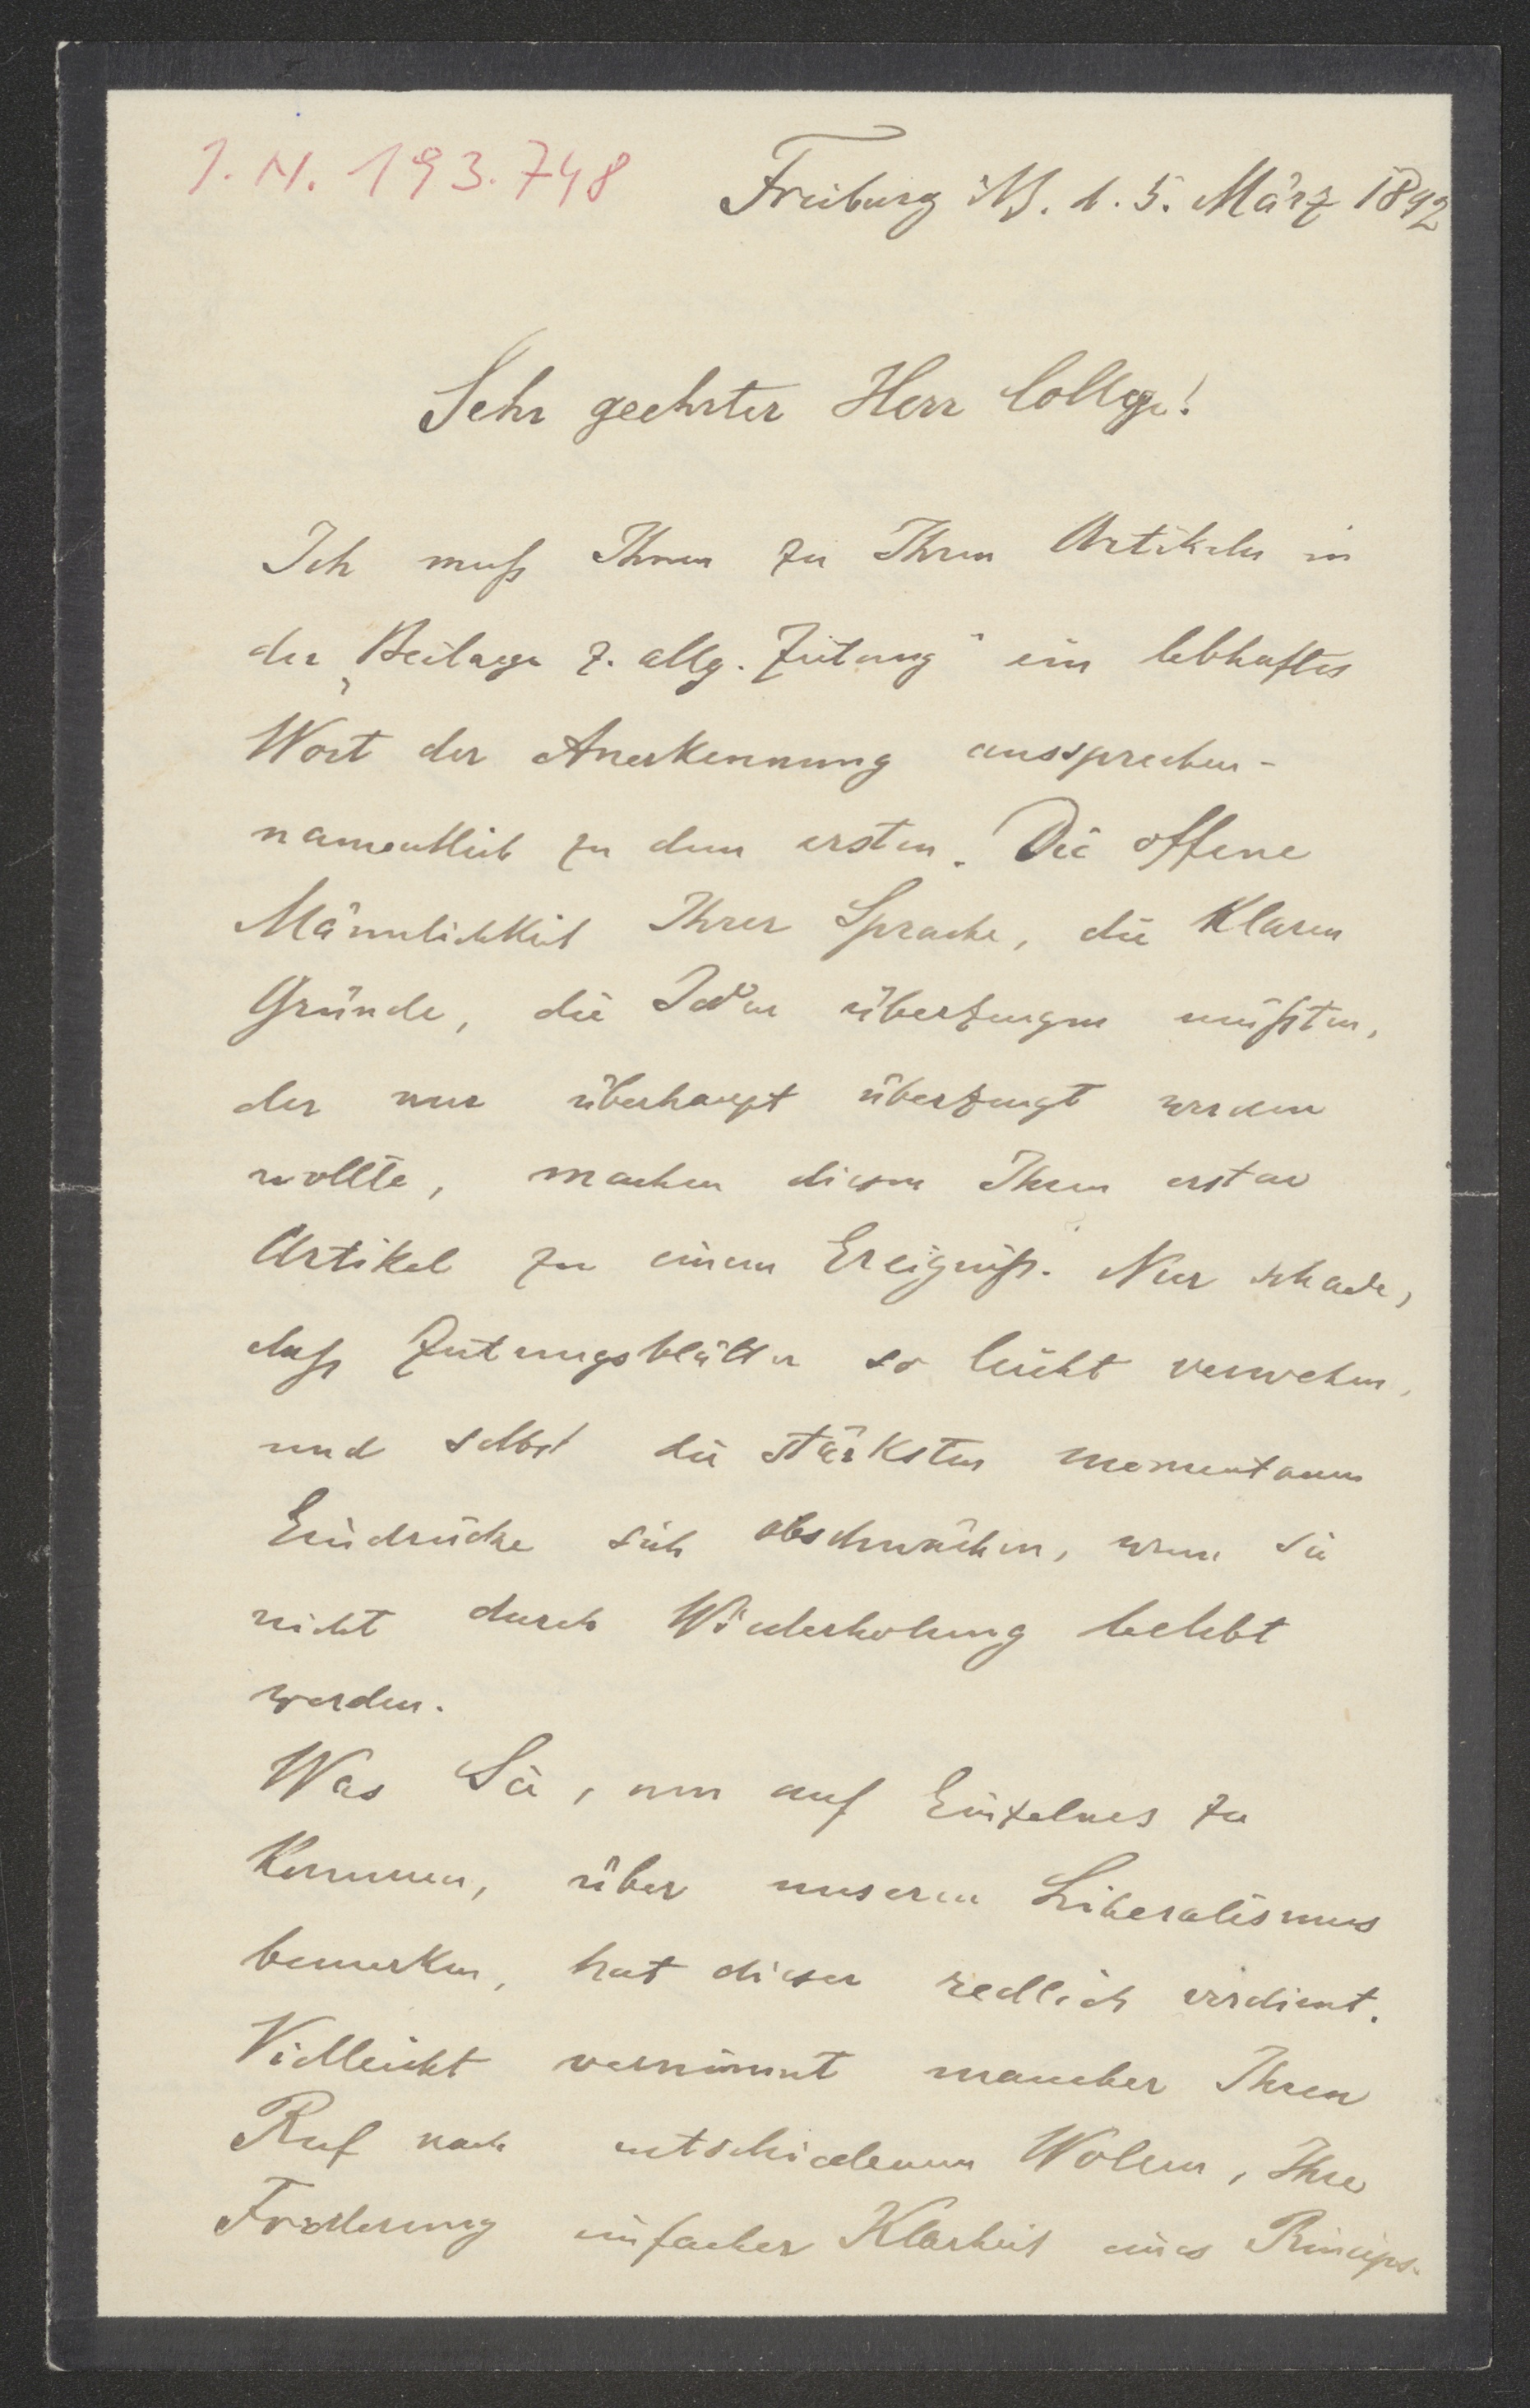 J. N. 193.748
Freiburg i/B. d. 5. März 1892
Sehr geehrter Herr College!
Ich muß Ihnen zu Ihren Artikeln in
der „Beilage z. allg. Zeitung“ ein lebhaftes
Wort der Anerkennung aussprechen -
namentlich zu dem ersten. Die offene
Männlichkeit Ihrer Sprache, die klaren
Gründe, die Jeden überzeugen müßten,
der nur überhaupt überzeugt werden
wollte, machen diesen Ihren ersten
Artikel zu einem Ereigniß. Nur schade,
daß Zeitungsblätter so leicht verwehen,
und selbst die stärksten momentanen
Eindrücke sich abschwächen, wenn sie
nicht durch Wiederholung belebt
werden.
Was Sie, um auf Einzelnes zu
kommen, über unseren Liberalismus
bemerken, hat dieser redlich verdient.
Vielleicht vernimmt mancher Ihren
Ruf nach entschiedenem Wollen, Ihre
Forderung einfacher Klarheit eines Princips.